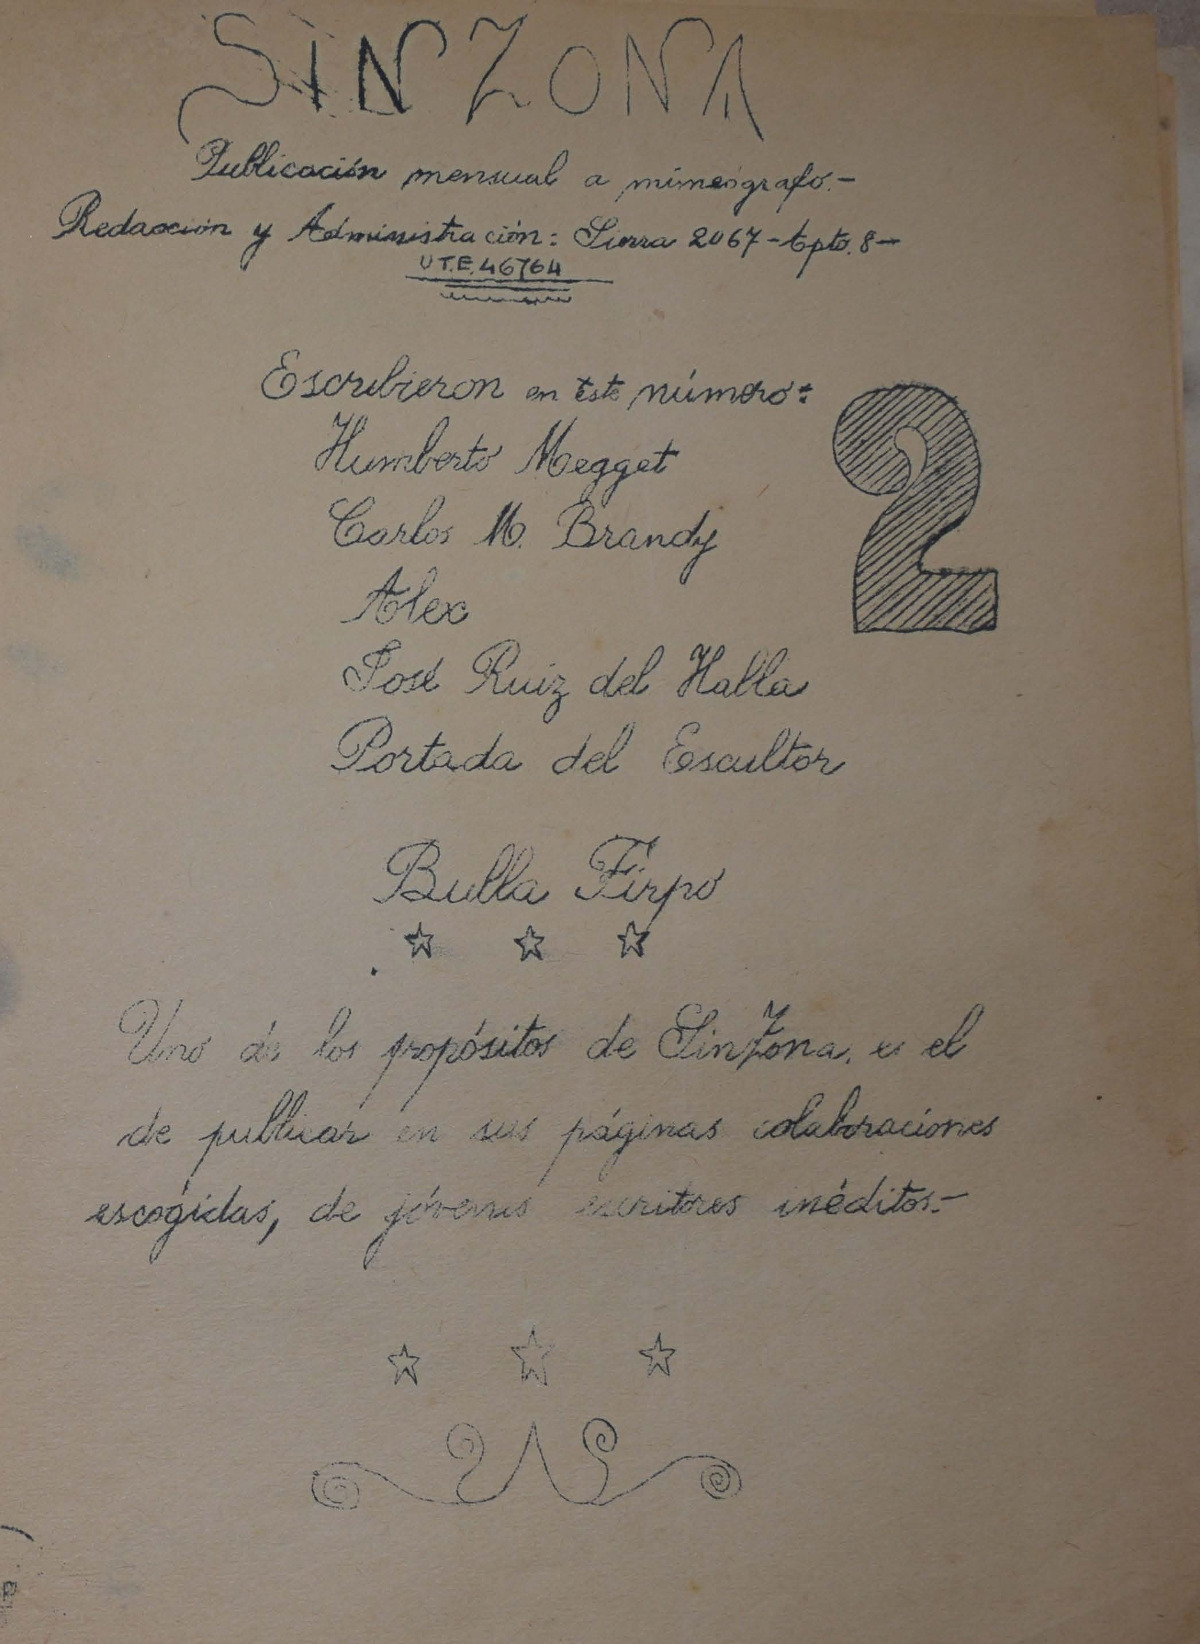 SINZONA
Publicación mensual a mimeógrafo.-
Redacción y Administración: Sierra 2067-Apto. 8-
U.T.E. 46764
Escribieron en este número:
2
Humberto Megget
Carlos M. Brandy
Alex
José Ruiz del Halla
Portada del Escultor
Bulla Firpo
Uno de los propósitos de SinZona, es el
de publicar en sus páginas colaboraciones
escogidas, de jóvenes escritores inéditos.-